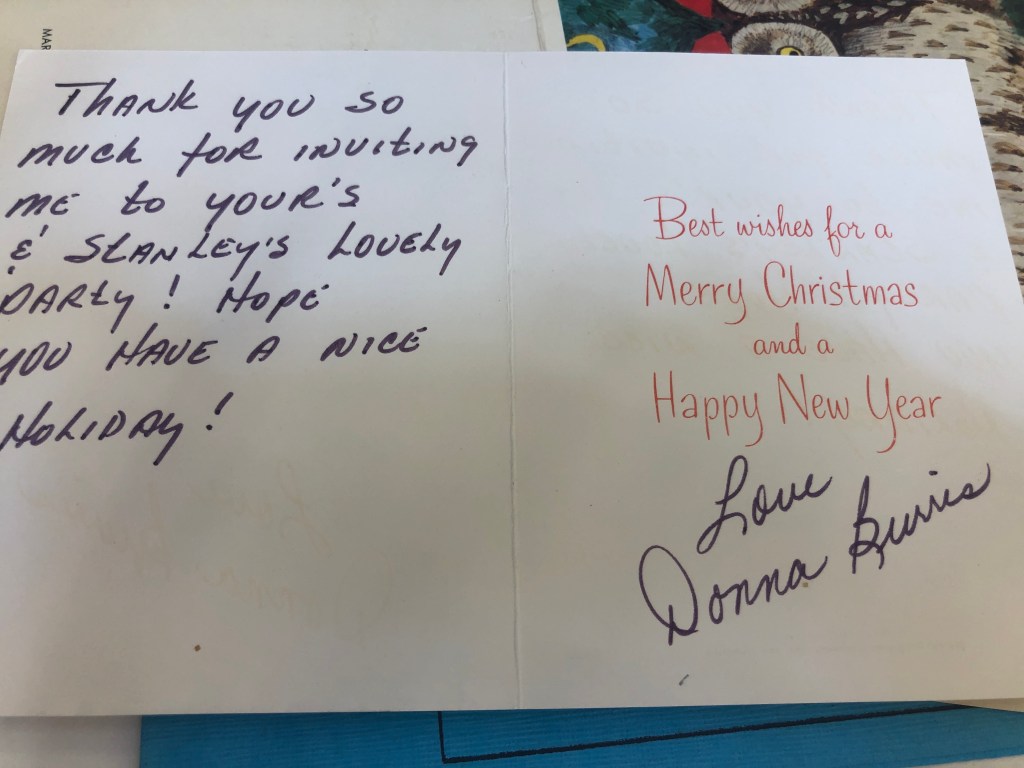 MAR
THANK YOU SO
MUCH FOR INVITING
ME TO YOUR'S
& STANLEY'S LOVELY
PARTY! HOPE
YOU HAVE A NICE
HOLIDAY!
Best wishes for a
Merry Christmas
and a
Happy New Year
Love
Donna Burris